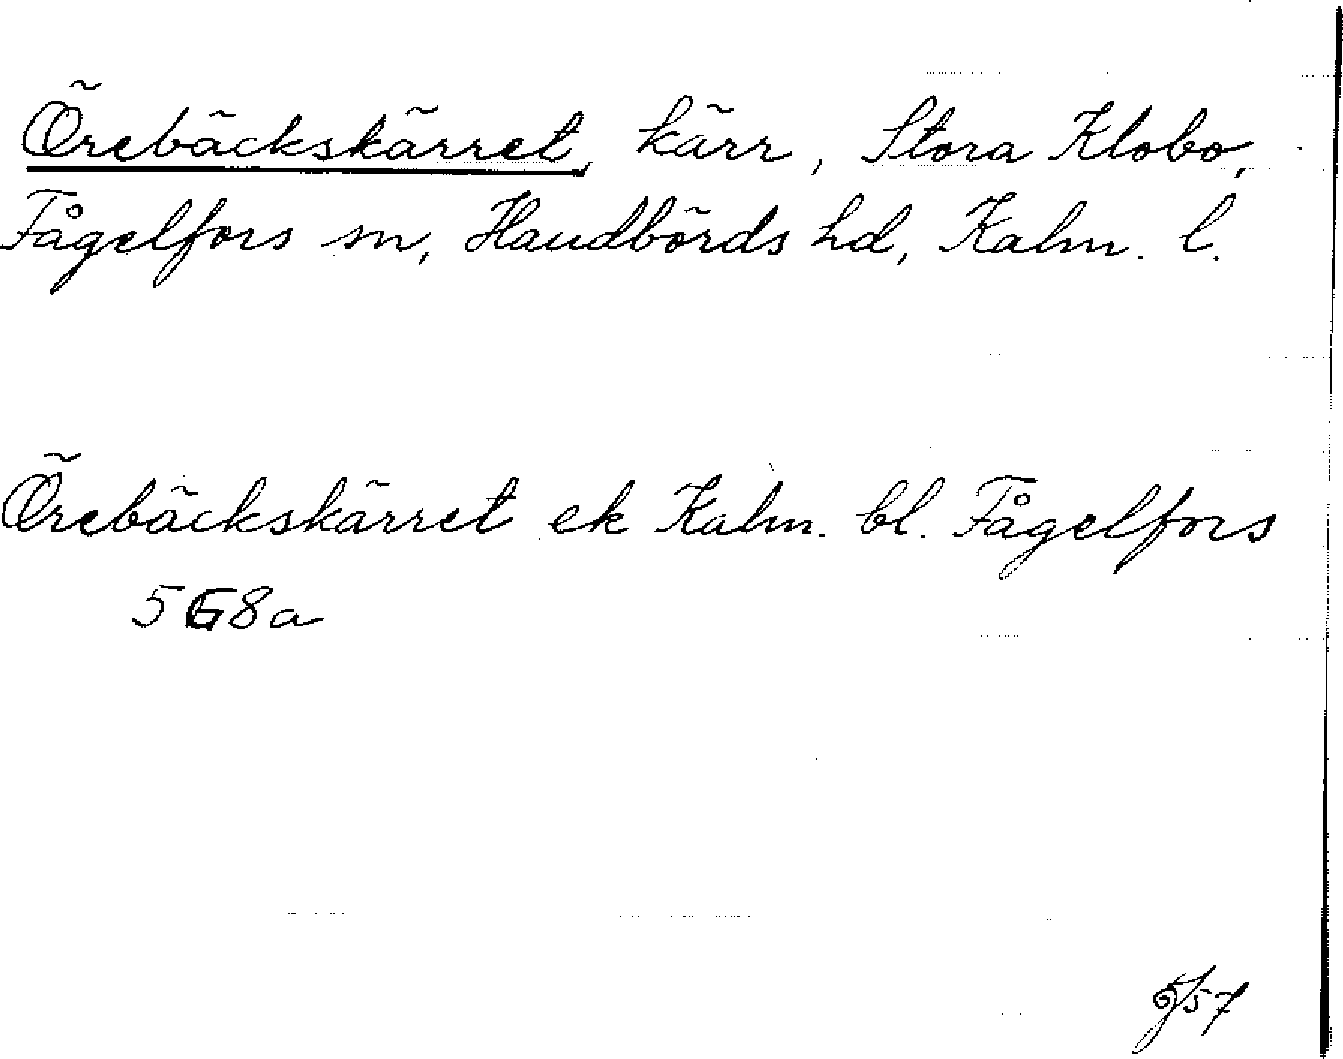 Örebäckskärret, kärr, Stora Klobo,
Fågelfors sn, Handbörds hd, Kalm. l.
Örebäckskärret ek Kalm. bl. Fågelfors
5G8a